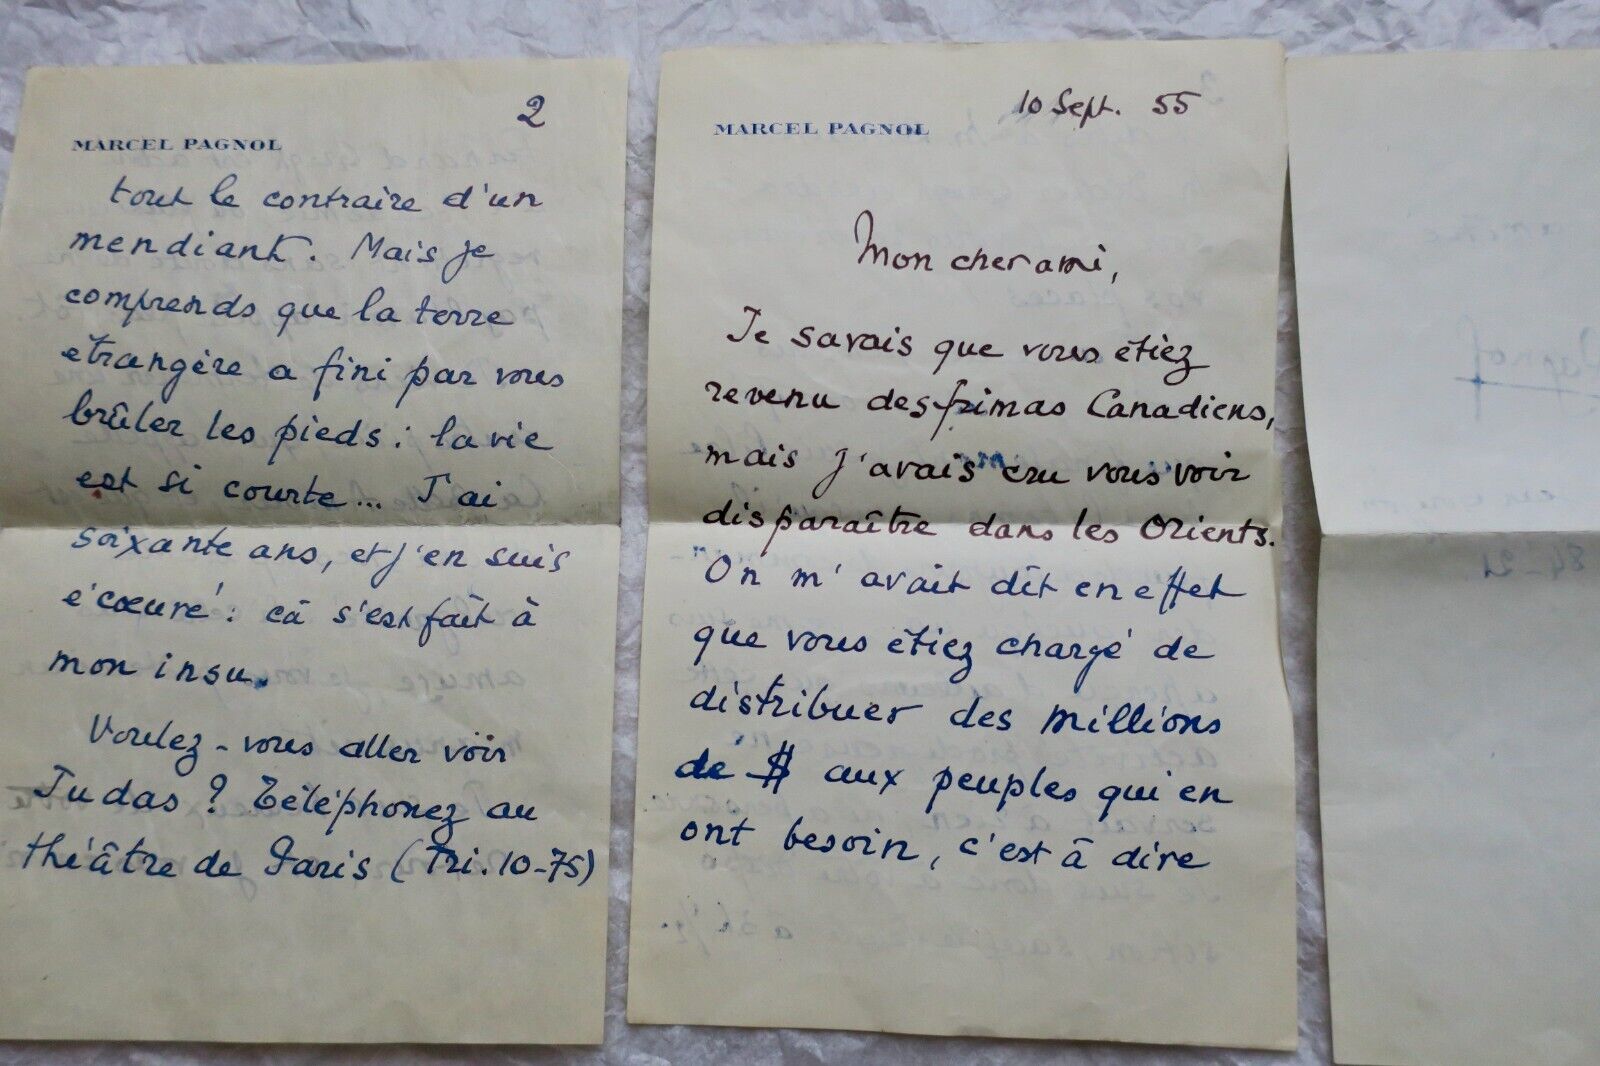 10 Sept. 55
MARCEL PAGNOL
Mon cher ami,
Je savais que vous étiez
revenu des frimas Canadiens,
mais j'avais cru vous voir
disparaître dans les Orients.
On m'avait dit en effet
que vous étiez chargé de
distribuer des millions
de $ aux peuples qui en
ont besoin, c'est à dire
2
MARCEL PAGNOL
tout le contraire d'un
mendiant. Mais je
comprends que la terre
étrangère a fini par vous
brûler les pieds : la vie
est si courte... J'ai
soixante ans, et j'en suis
écœuré : ça s'est fait à
mon insu.
Voulez-vous aller voir
Judas ? Téléphonez au
théâtre de Paris (Tri. 10-75)
Pagnol
84-21